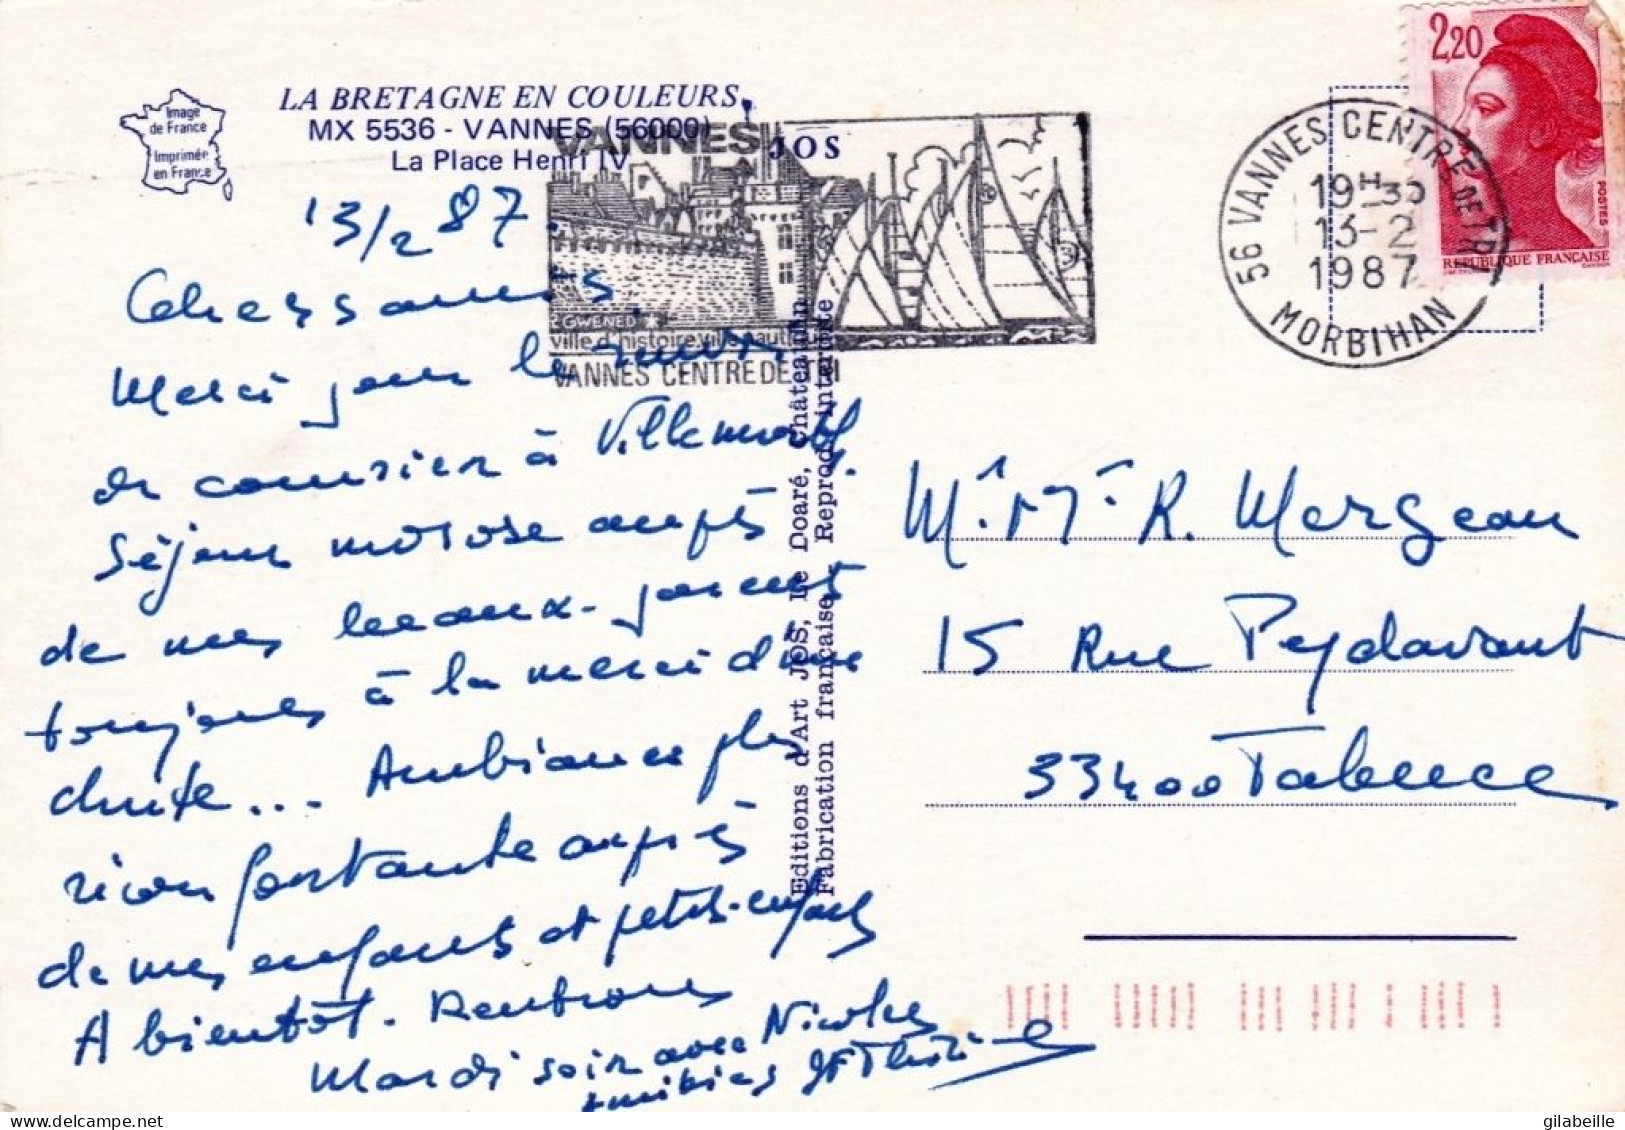 Image
de France
Imprimée
en France
LA BRETAGNE EN COULEURS
MX 5536 - VANNES (56000)
La Place Henri IV
JOS
VANNES
GWENED
ville d'histoire, ville nautique
VANNES CENTRE DE TRI
56 VANNES CENTRE DE TRI
19H30
13-2
1987
MORBIHAN
2,20
POSTES
REPUBLIQUE FRANÇAISE
13/2 87.
Chers amis
Merci pour le
de courrier à
Séjour morose auprès
de mes beaux-parents
toujours à la merci d'une
chute... Ambiance plus
réconfortante auprès
de mes enfants et petits-enfants
A bientôt. Rentrons
Mardi soir avec Nicolas
Amitiés
Editions d'Art JOS, Le Doaré, Châteaulin
Fabrication française Reprod. interdite
Mr. Mme R. Mergeau
15 Rue Peydavant
33400 Talence
gilabeille